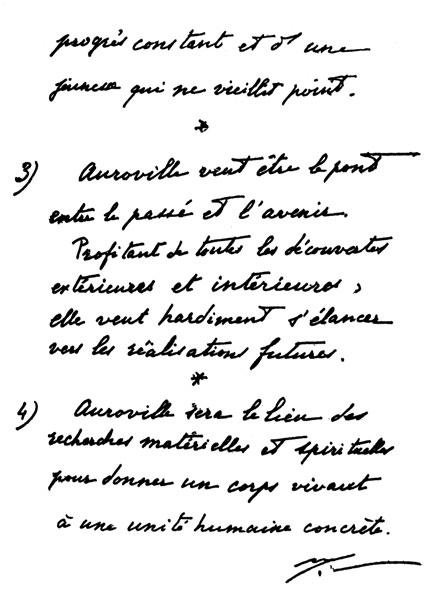 progrès constant et d'une
jeunesse qui ne vieillit point.
*
3) Auroville veut être le pont
entre le passé et l'avenir.
Profitant de toutes les découvertes
extérieures et intérieures,
elle veut hardiment s'élancer
vers les réalisations futures.
*
4) Auroville sera le lieu des
recherches matérielles et spirituelles
pour donner un corps vivant
à une unité humaine concrète.